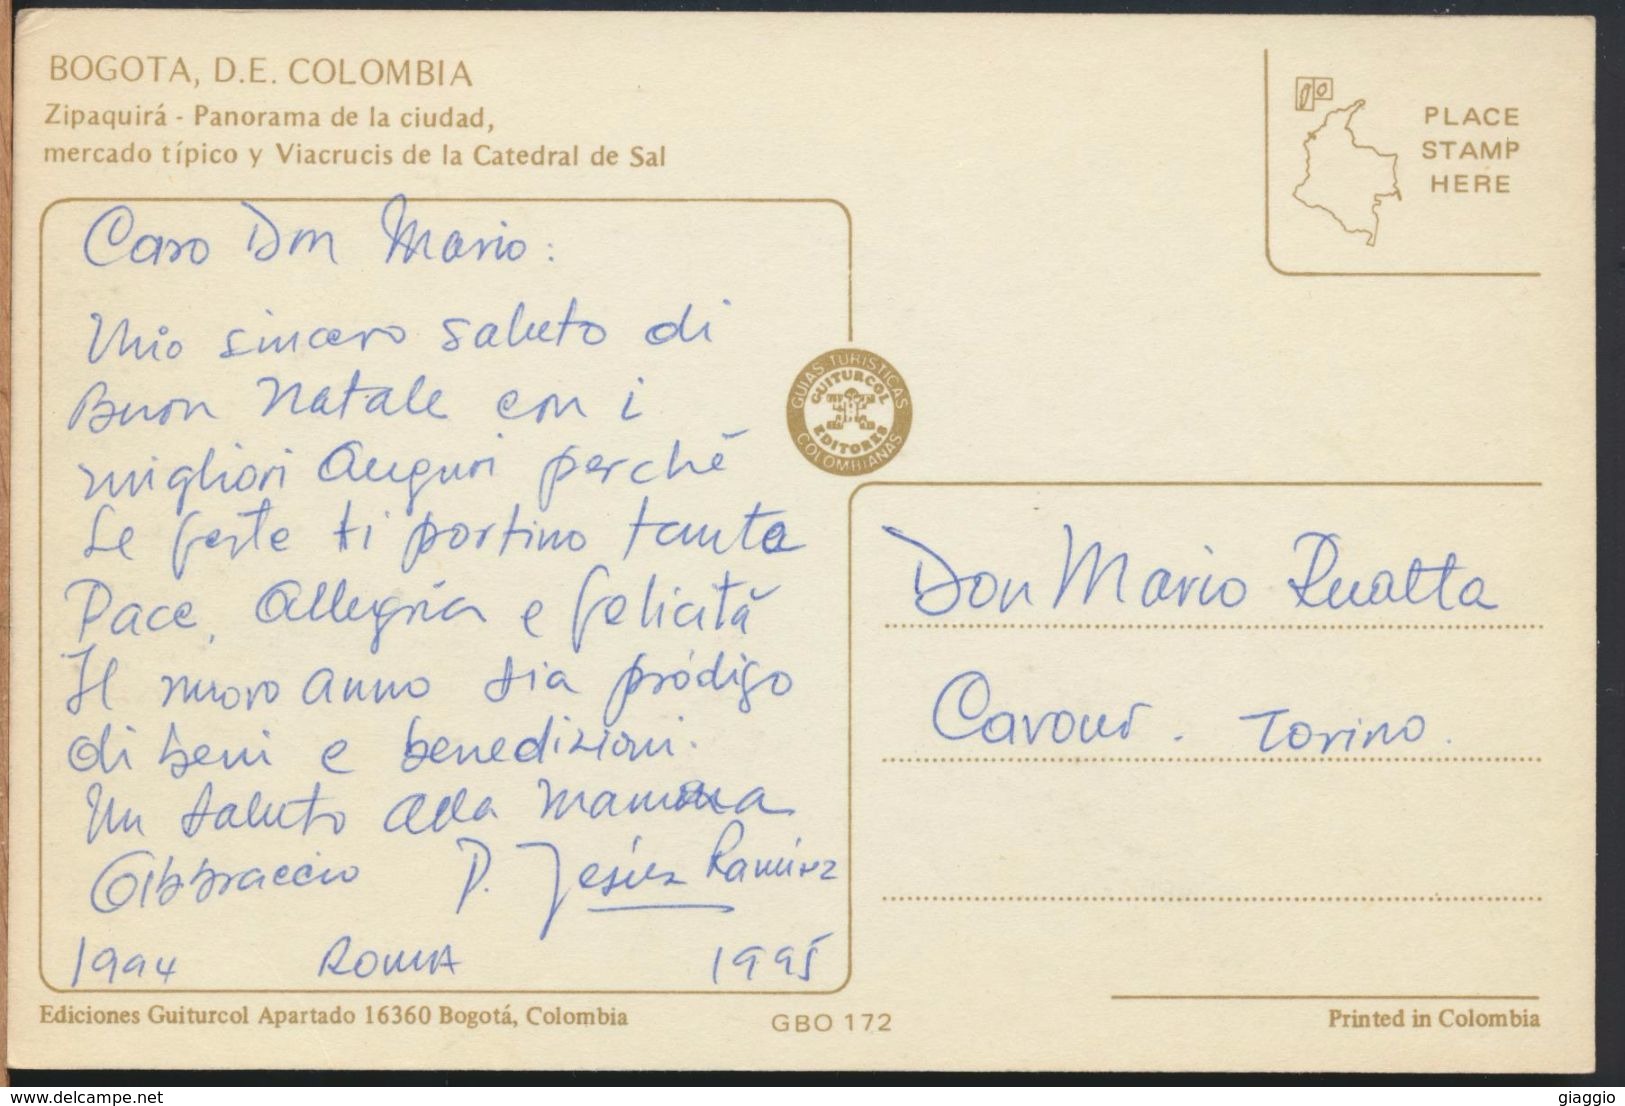 BOGOTA, D.E. COLOMBIA
Zipaquirá - Panorama de la ciudad,
mercado típico y Viacrucis de la Catedral de Sal
PLACE
STAMP
HERE
Caro Don Mario:
Mio sincero saluto di
Buon Natale con i
migliori Auguri perché
Le feste ti portino tanta
Pace, Allegria e felicità
Il nuovo anno sia pródigo
di beni e benedizioni.
Un saluto alla mamma
Abbraccio P. Jesús Ramírez
1994 ROMA 1995
GUIAS TURISTICAS
GUITURCOL
EDITORES
COLOMBIANAS
Don Mario Rualta
Cavour. Torino.
Ediciones Guiturcol Apartado 16360 Bogotá, Colombia
GBO 172
Printed in Colombia
www.delcampe.net
giaggio